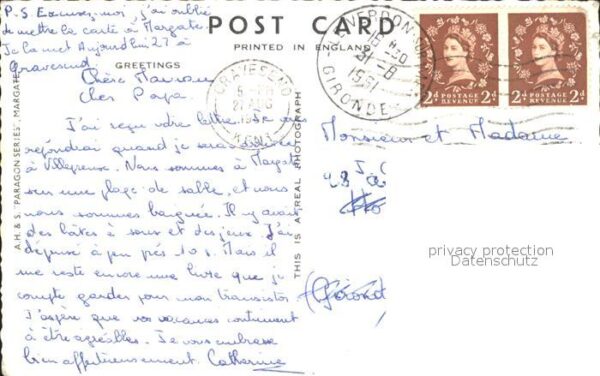 P.S Excusez-moi, j'ai oublié
de mettre la carte à Margate
Je la met Aujourd'hui 27 à
Gravesend
POST CARD
PRINTED IN ENGLAND
GREETINGS
Chère Maman
Cher Papa
J'ai reçu votre lettre. Je vous
répondrai quand je serai
à Villepreux. Nous sommes à Margate
sur une plage de sable, et nous
nous sommes baignée. Il y avait
des bâtes à sous et des jeux. J'ai
dépensé à peu près 10 s. Mais il
me reste encore une livre que je
compte garder pour mon transistor
J'espère que vos vacances continuent
à être agréables. Je vous embrasse
bien affectueusement. Catherine
A.H. & S. "PARAGON SERIES" MARGATE
THIS IS A REAL PHOTOGRAPH
GRAVESEND
KENT
31-8
1961
GIRONDE
2d POSTAGE REVENUE 2d
2d POSTAGE REVENUE 2d
Monsieur et Madame
28
(Gironde)
privacy protection
Datenschutz